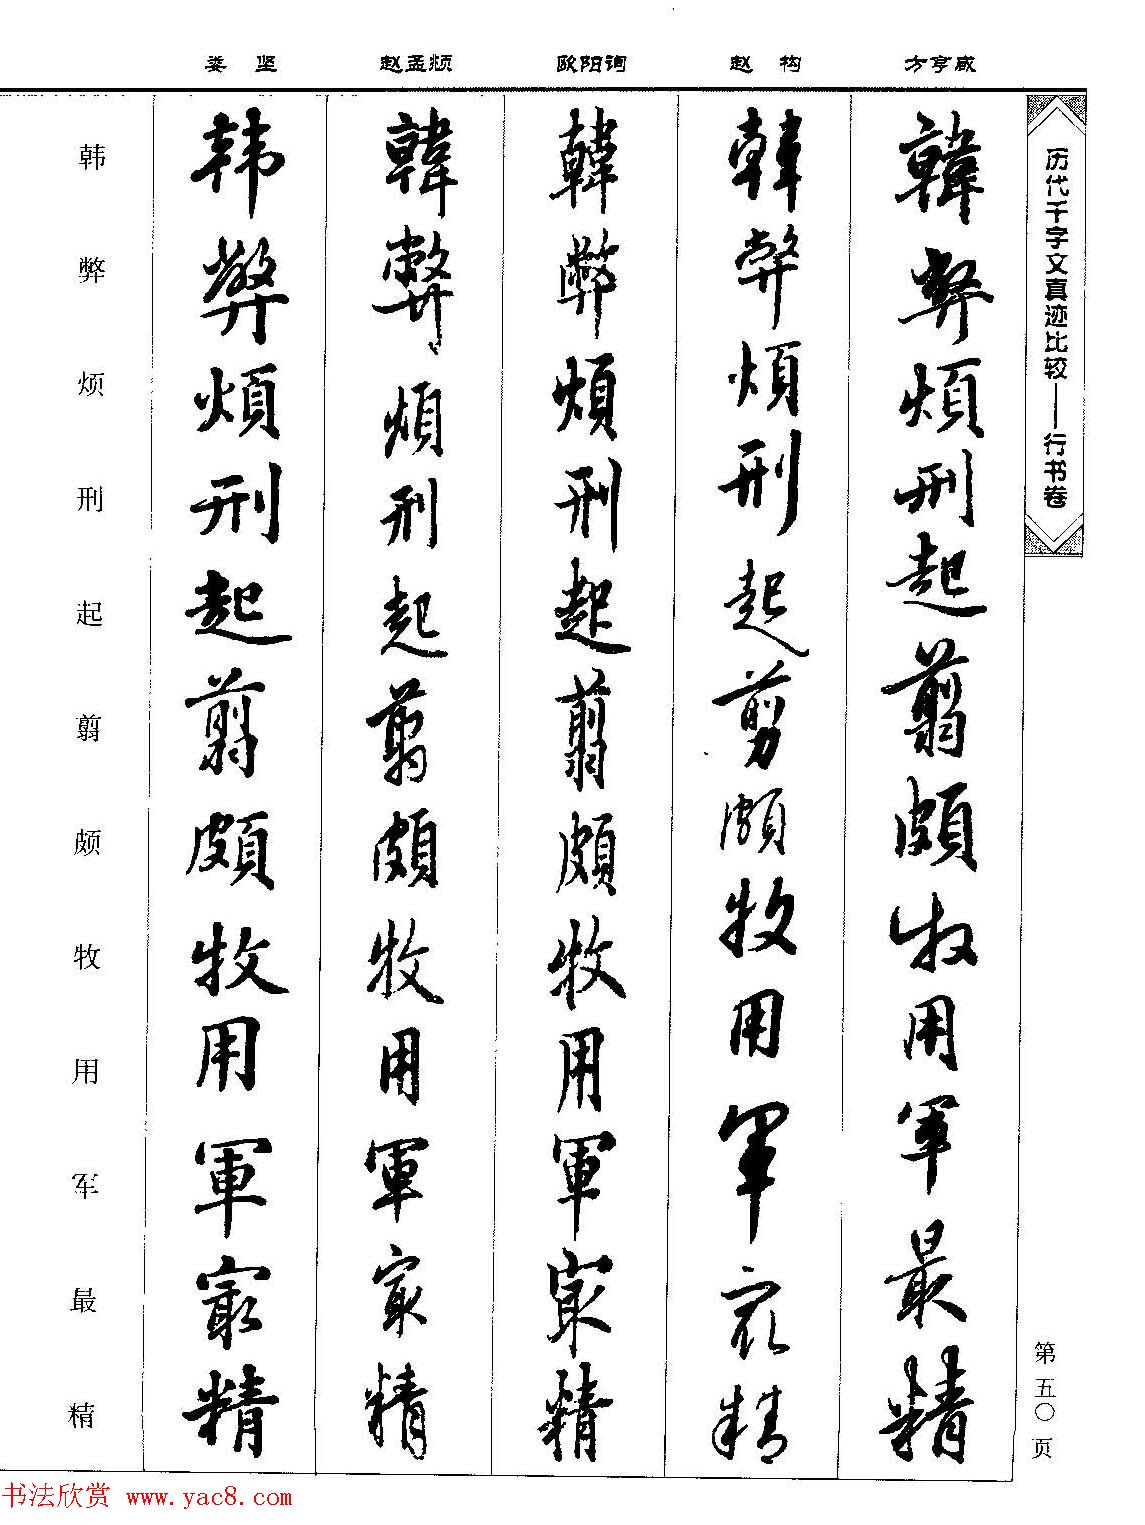 娄坚 赵孟頫 欧阳询 赵构 方亨咸
历代千字文真迹比较——行书卷
韓弊煩刑起翦頗牧用軍最精
韓弊煩刑起剪頗牧用軍最精
韓弊煩刑起翦頗牧用軍最精
韓弊煩刑起翦頗牧用軍最精
韩弊煩刑起翦頗牧用軍最精
韩弊烦刑起翦颇牧用军最精
第五〇页
书法欣赏 www.yac8.com